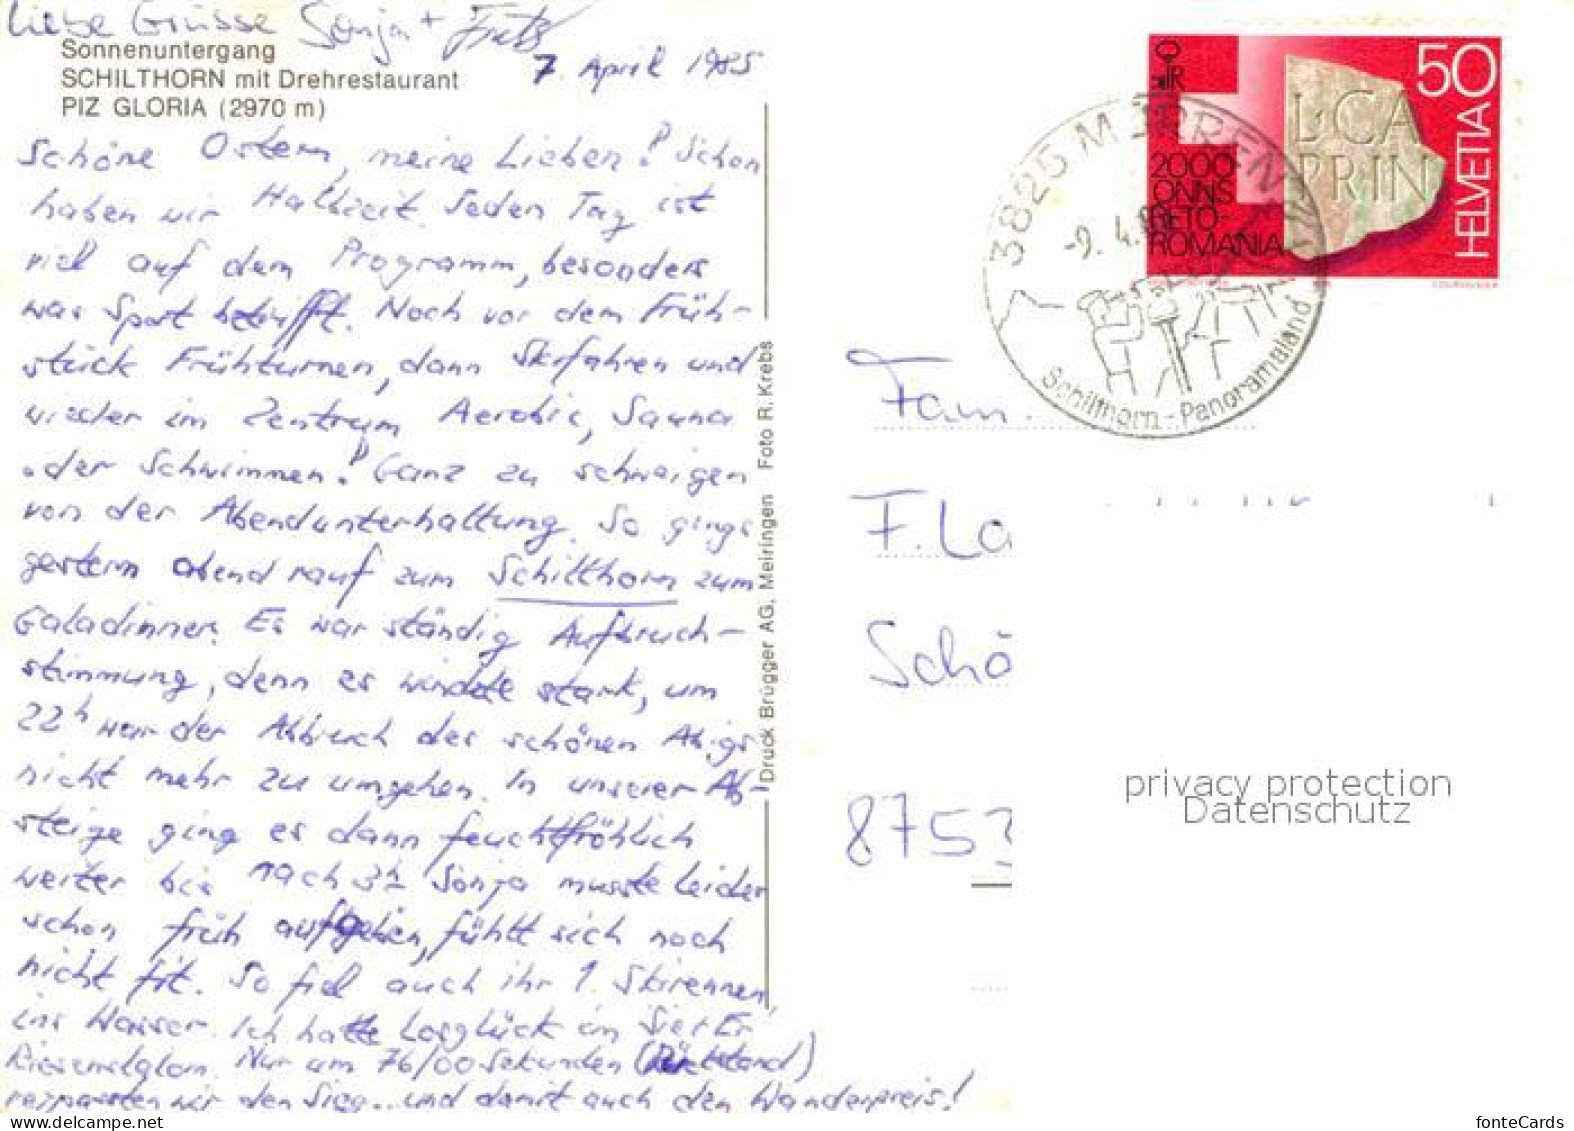 Liebe Grüsse Sonja + Fritz
Sonnenuntergang
SCHILTHORN mit Drehrestaurant
PIZ GLORIA (2970 m)
7. April 1985
Schöne Ostern, meine Lieben! Schon
haben wir Halbzeit. Jeden Tag ist
viel auf dem Programm, besonders
was Sport betrifft. Noch vor dem Früh-
stück Frühturnen, dann Skifahren und
wieder im Zentrum Aerobic, Sauna
oder Schwimmen! Ganz zu schweigen
von der Abendunterhaltung. So gings
gestern abend rauf zum Schilthorn zum
Galadinner. Es war ständig Aufbruch-
stimmung, denn es windete stark, um
22h war der Abbruch des schönen Abigs
nicht mehr zu umgehen. In unserer Ab-
steige ging es dann feuchtfröhlich
weiter bis nach 3h. Sonja musste leider
schon früh aufgeben, fühlt sich noch
nicht fit. So fiel auch ihr 1. Skirennen
ins Wasser. Ich hatte Losglück im Sie+Er
Riesenslalom. Nur um 76/00 Sekunden (Rückstand)
verpassten wir den Sieg... und damit auch den Wanderpreis!
Druck Brügger AG, Meiringen Foto R. Krebs
50
HELVETIA
L·CA
PRIN
2000
ONNS
RETO-
ROMANIA
COURVOISIER
3825 MÜRREN
-9. 4.
Schilthorn-Panoramaland
Fam.
F. La
Schö
8753
privacy protection
Datenschutz
www.delcampe.net
fonteCards